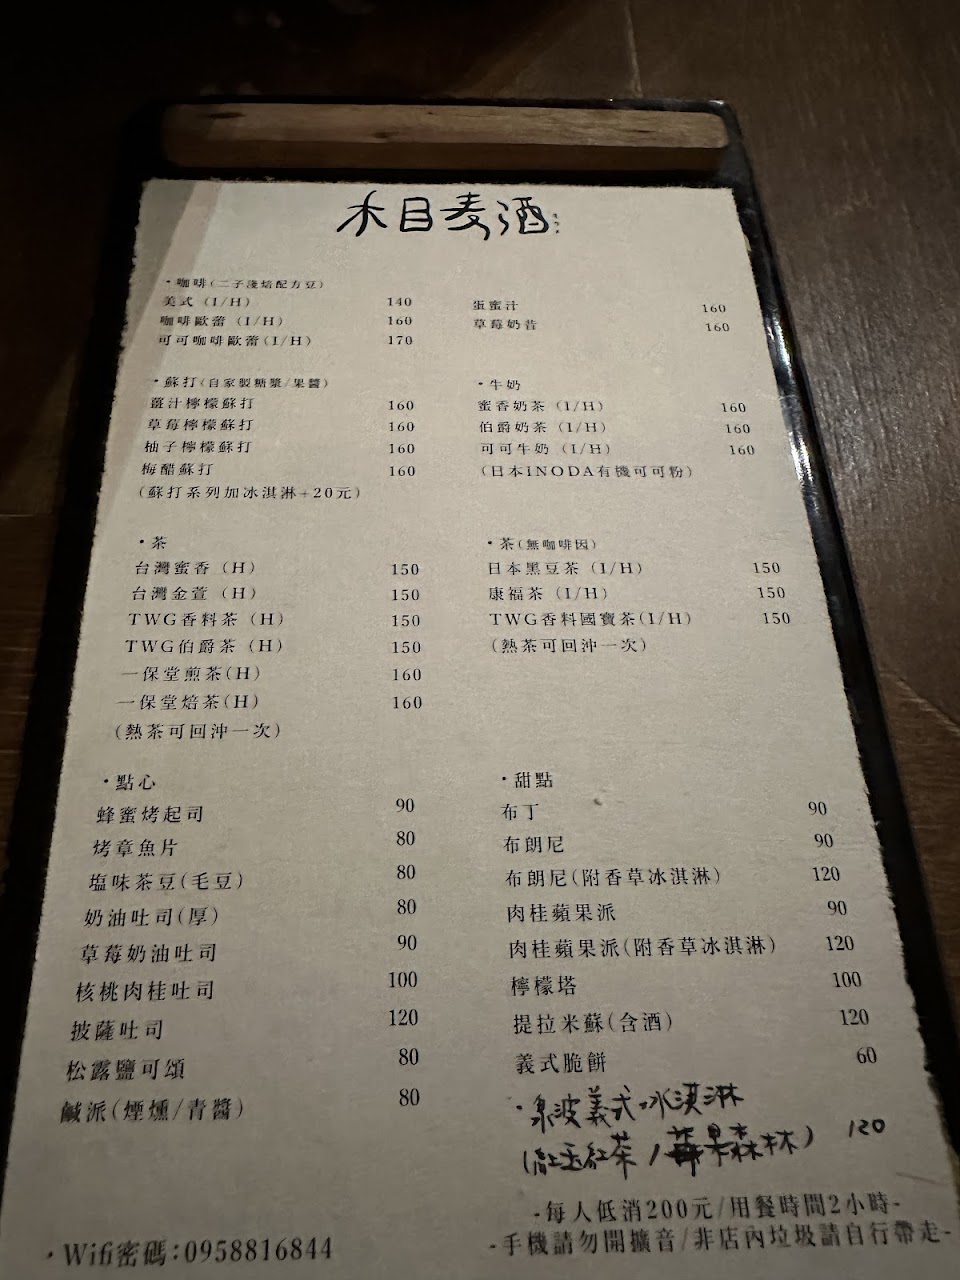 木目麦酒
・咖啡(二子淺焙配方豆)
美式 (I/H) 140
咖啡歐蕾 (I/H) 160
可可咖啡歐蕾(I/H) 170
蛋蜜汁 160
草莓奶昔 160
・蘇打(自家製糖漿/果醬)
薑汁檸檬蘇打 160
草莓檸檬蘇打 160
柚子檸檬蘇打 160
梅醋蘇打 160
(蘇打系列加冰淇淋+20元)
・牛奶
蜜香奶茶 (I/H) 160
伯爵奶茶 (I/H) 160
可可牛奶 (I/H) 160
(日本INODA有機可可粉)
・茶
台灣蜜香 (H) 150
台灣金萱 (H) 150
TWG香料茶 (H) 150
TWG伯爵茶 (H) 150
一保堂煎茶(H) 160
一保堂焙茶(H) 160
(熱茶可回沖一次)
・茶(無咖啡因)
日本黑豆茶 (I/H) 150
康福茶 (I/H) 150
TWG香料國寶茶(I/H) 150
(熱茶可回沖一次)
・點心
蜂蜜烤起司 90
烤章魚片 80
塩味茶豆(毛豆) 80
奶油吐司(厚) 80
草莓奶油吐司 90
核桃肉桂吐司 100
披薩吐司 120
松露鹽可頌 80
鹹派(煙燻/青醬) 80
・甜點
布丁 90
布朗尼 90
布朗尼(附香草冰淇淋) 120
肉桂蘋果派 90
肉桂蘋果派(附香草冰淇淋) 120
檸檬塔 100
提拉米蘇(含酒) 120
義式脆餅 60
・泉波義式冰淇淋
(紅玉紅茶/莓果森林) 120
-每人低消200元/用餐時間2小時-
-手機請勿開擴音/非店內垃圾請自行帶走-
・Wifi密碼:0958816844